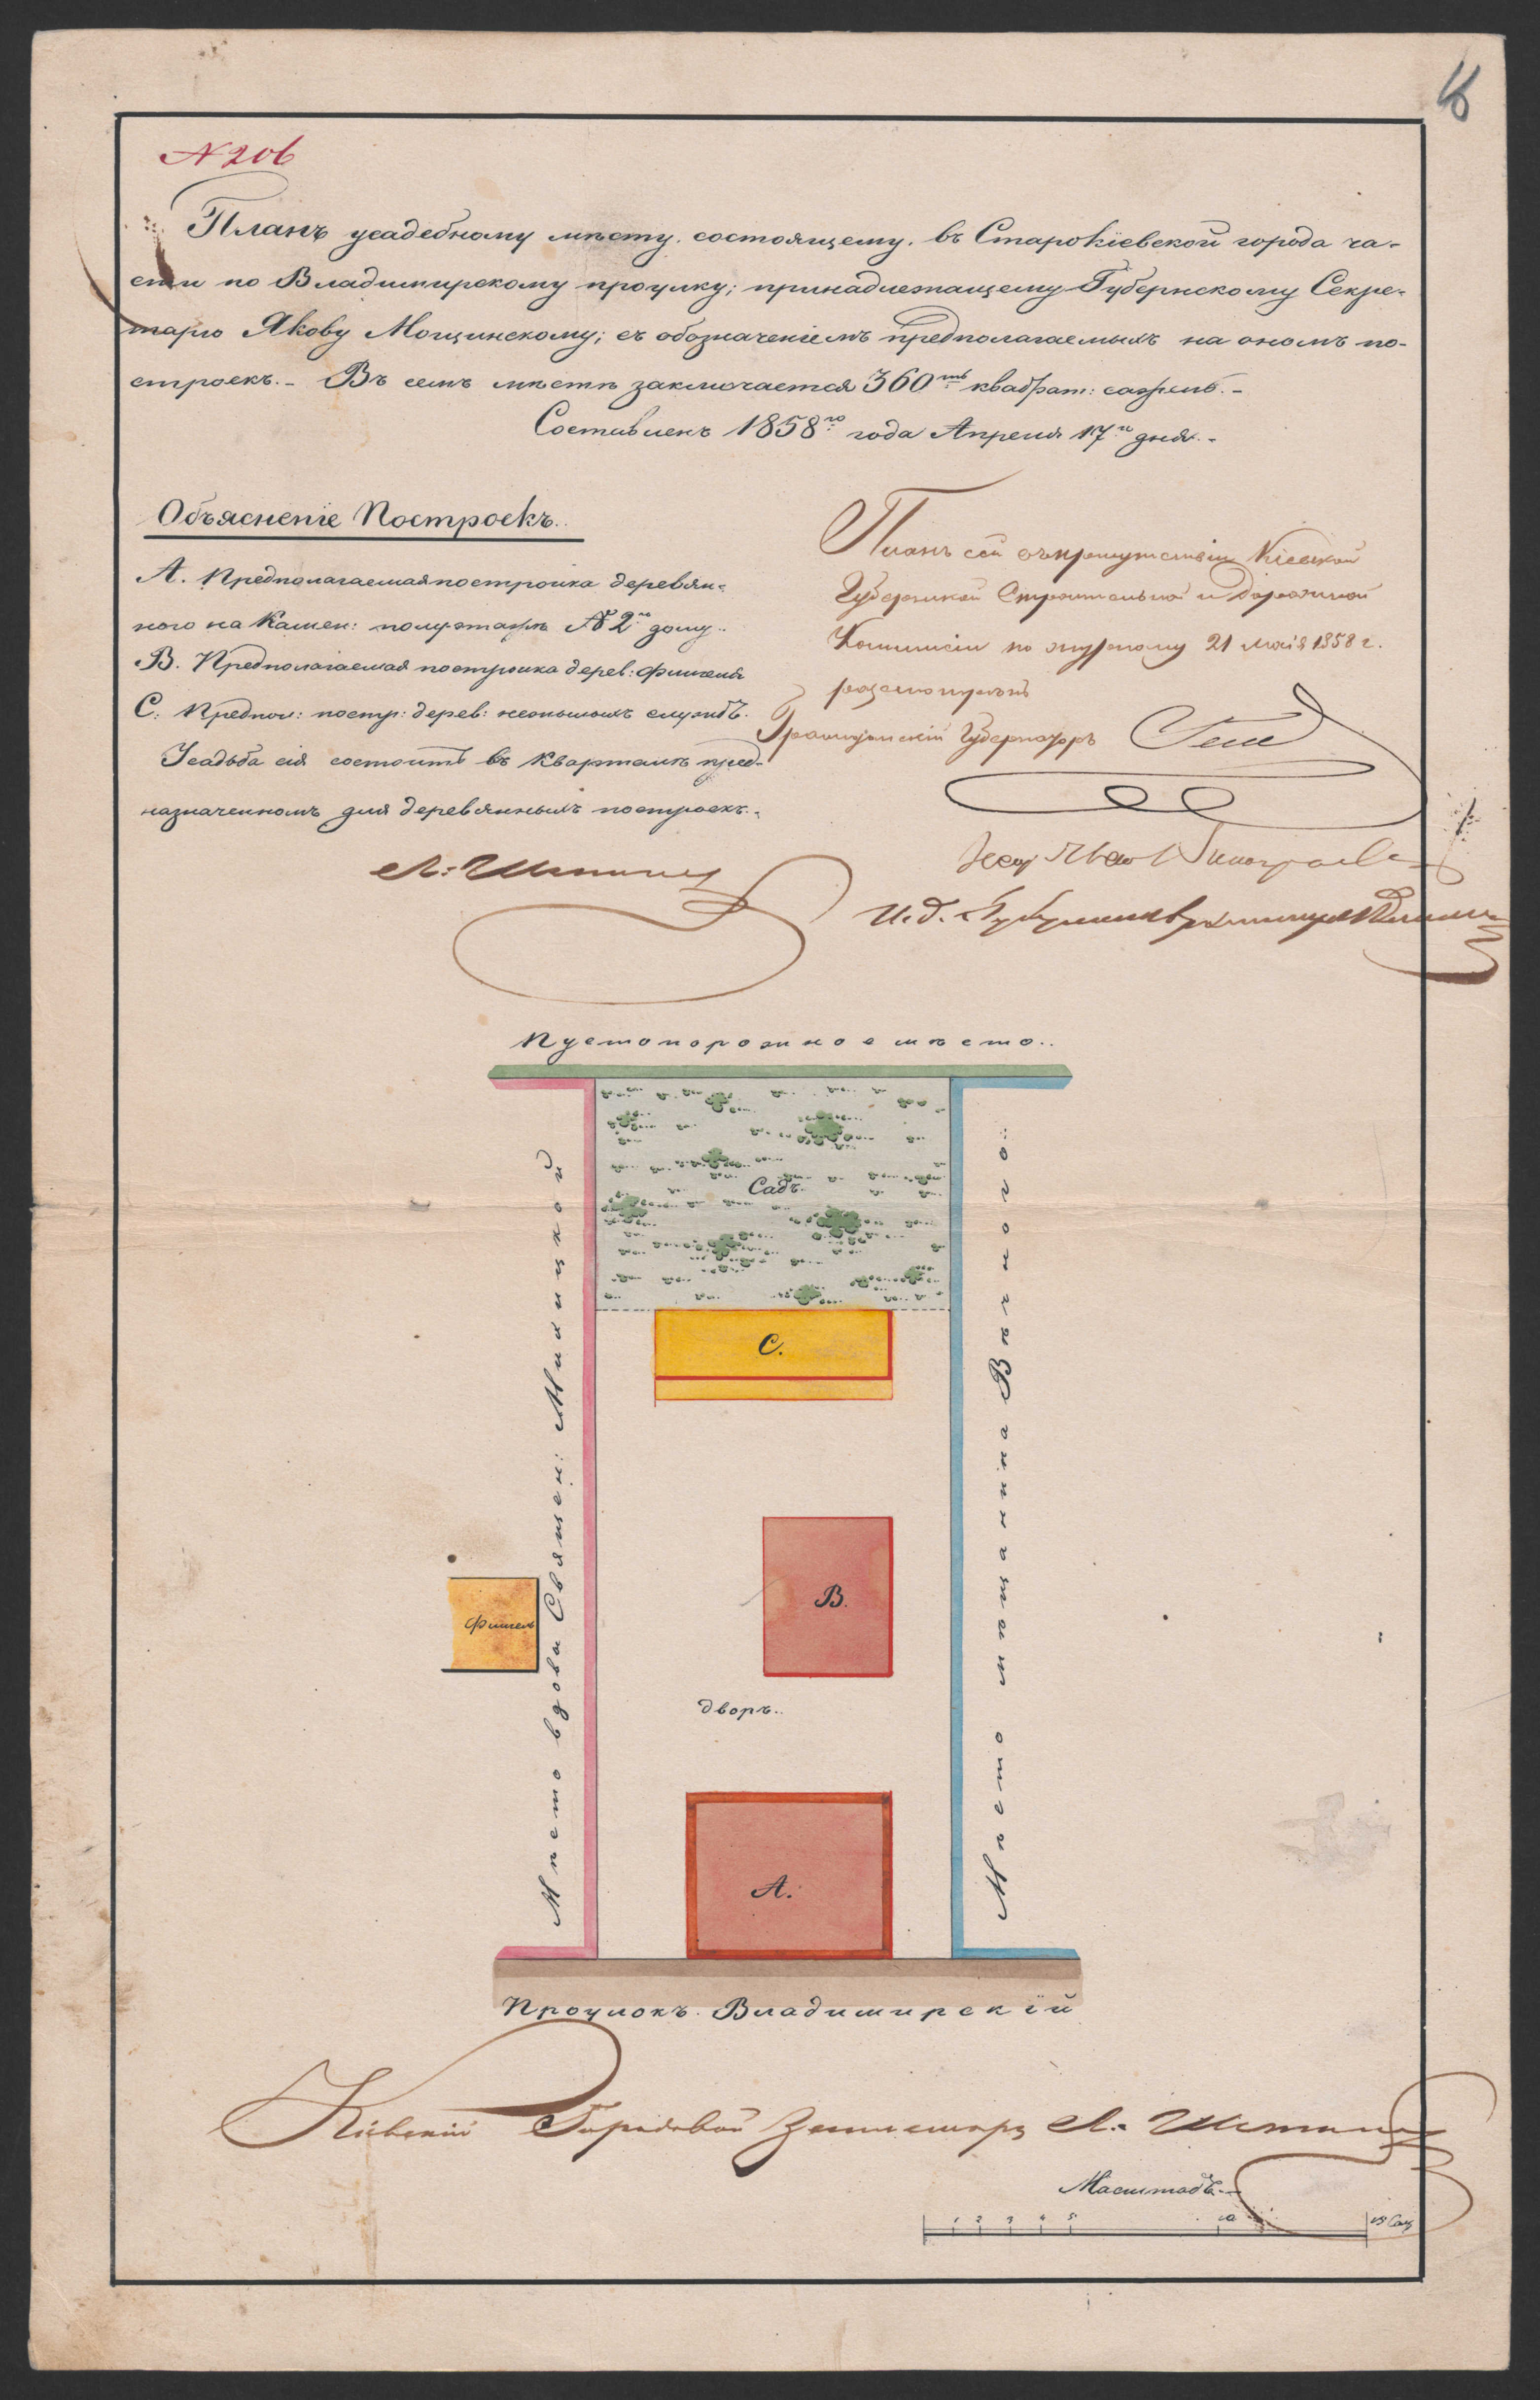 N 206
Планъ усадебному мѣсту. состоящему. въ Старокіевской города ча-
сти по Владимирскому проулку; принадлежащему Губернскому Секре-
тарю Якову Мощинскому; съ обозначеніемъ предполагаемыхъ на ономъ по-
строекъ.- Въ семъ мѣстѣ заключается 360ть квадрат: сажень.-
Составленъ 1858го года Апреля 17го дня.-
Объясненіе Построекъ.
А. Предполагаемая постройка деревян-
ного на Камен: полуэтажѣ № 2го дому.
В. Предполагаемая постройка дерев: флигеля
С. Предпол: постр: дерев: нежилыхъ службъ.
Усадьба сія состоитъ въ Кварталѣ пред-
назначенномъ для деревянныхъ построекъ.
Планъ сей въ присутствіи Кіевской
Губернской Строительной и Дорожной
Коммисіи по журналу 21 мая 1858 г.
разсмотрѣнъ
Гражданскій Губернаторъ
И. д. Губернскаго
Пустопорожное мѣсто.
Садъ.
С.
Мѣсто вдовы Священ:
Мѣсто мѣщанина Вѣчного.
В.
Флигель
дворъ.
А.
Проулокъ. Владимирскій
Кіевскій Городовой Землемѣръ Л.
Масштабъ.
1 2 3 4 5 10 15 Саж